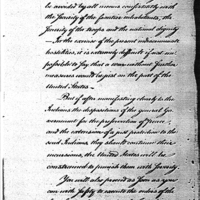 be avoided by all means consistently with
the security of the frontier inhabitants, the
security of the troops and the national dignity.
In the exercise of the present indiscriminate
hostilities, it is extremely difficult if not im-
possible to say that a war without further
measures would be just on the part of the
United States.
But if after manifesting clearly to the
Indians the dispositions of the general go-
vernment for the preservation of peace,
and the extension of a just protection to the
said Indians, they should continue their
incursions, the United States will be
constrained to punish them with severity.
You will also proceed as soon as you
can with safety to execute the orders of the